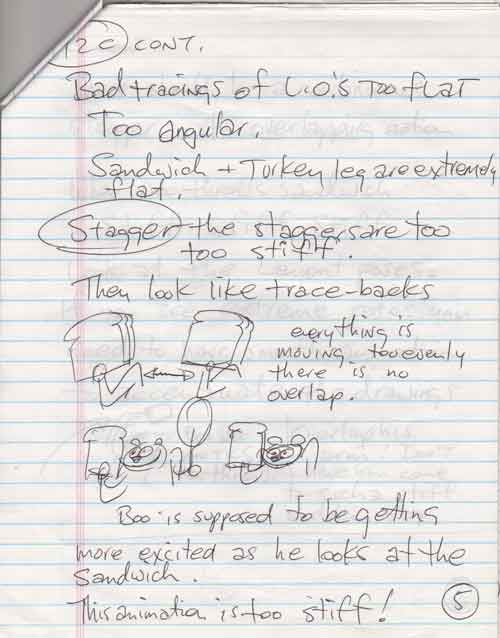 12C CONT.
Bad tracings of L.O.'s Too flat
Too angular.
Sandwich + Turkey leg are extremely
flat.
Stagger the staggers are too
too stiff.
They look like trace-backs
everything is
moving too evenly
there is no
overlap.
Boo is supposed to be getting
more excited as he looks at the
Sandwich.
This animation is too stiff!
5